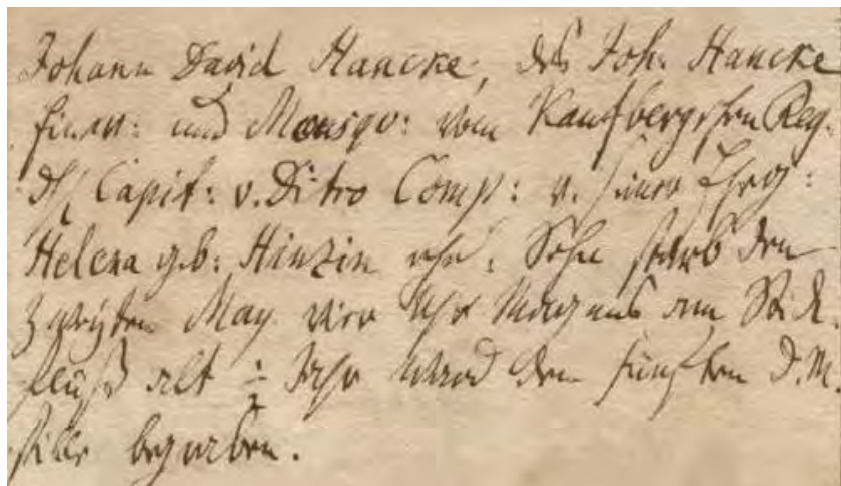 Johann David Hancke, des Joh. Hancke
und Mousqv: vom Kaufbergschen Reg.
Capit: v. Ditro Comp: v. seiner Eheg:
Helena geb: Hinzin ehe: Sohn starb den
zweyten May vier Uhr Morgens am Stick
fluß alt ½ Jahr ward den fünften d. M.
stille begraben.